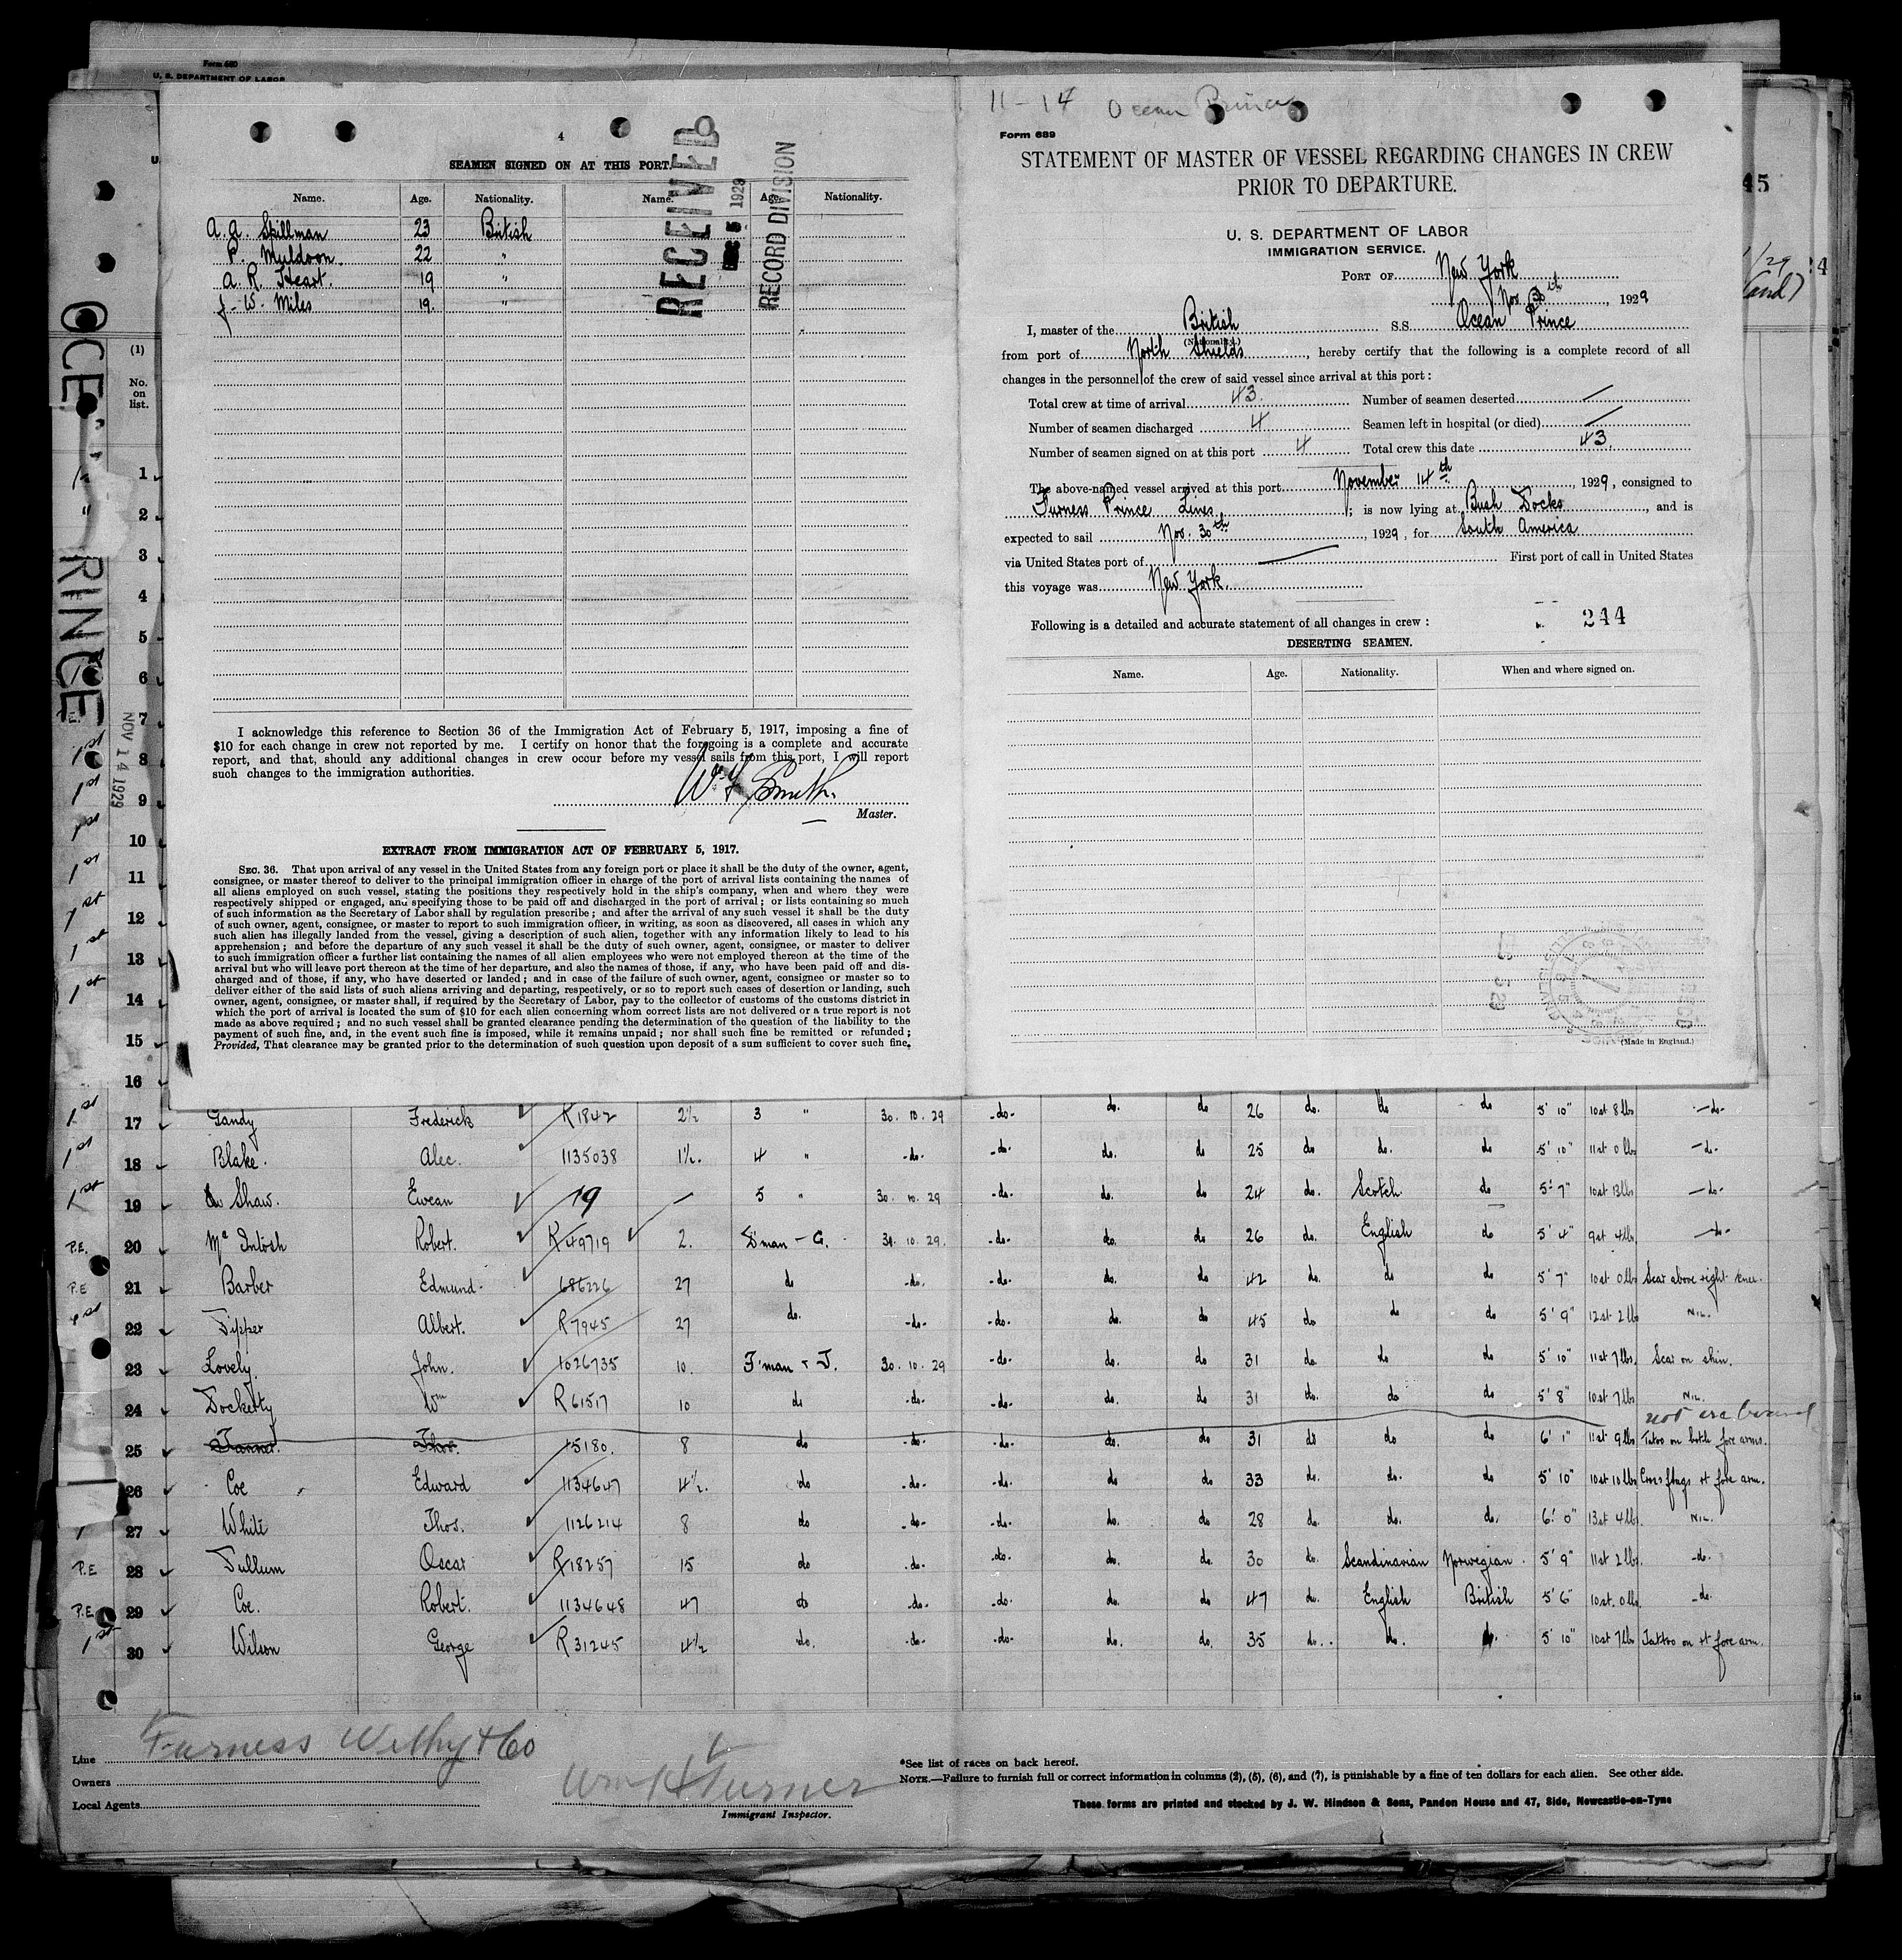 Form 680
U. S. DEPARTMENT OF LABOR
4
SEAMEN SIGNED ON AT THIS PORT.
Name. Age. Nationality. Name. Age. Nationality.
A. A. Spillman 23 British
P. Muldoon. 22 "
A. R. Heart. 19 "
J. W. Miles 19. "
RECEIVED
5 1929
RECORD DIVISION
I acknowledge this reference to Section 36 of the Immigration Act of February 5, 1917, imposing a fine of
$10 for each change in crew not reported by me. I certify on honor that the foregoing is a complete and accurate
report, and that, should any additional changes in crew occur before my vessel sails from this port, I will report
such changes to the immigration authorities.
Smith.
Master.
EXTRACT FROM IMMIGRATION ACT OF FEBRUARY 5, 1917.
SEC. 36. That upon arrival of any vessel in the United States from any foreign port or place it shall be the duty of the owner, agent,
consignee, or master thereof to deliver to the principal immigration officer in charge of the port of arrival lists containing the names of
all aliens employed on such vessel, stating the positions they respectively hold in the ship's company, when and where they were
respectively shipped or engaged, and specifying those to be paid off and discharged in the port of arrival; or lists containing so much
of such information as the Secretary of Labor shall by regulation prescribe; and after the arrival of any such vessel it shall be the duty
of such owner, agent, consignee, or master to report to such immigration officer, in writing, as soon as discovered, all cases in which any
such alien has illegally landed from the vessel, giving a description of such alien, together with any information likely to lead to his
apprehension; and before the departure of any such vessel it shall be the duty of such owner, agent, consignee, or master to deliver
to such immigration officer a further list containing the names of all alien employees who were not employed thereon at the time of the
arrival but who will leave port thereon at the time of her departure, and also the names of those, if any, who have been paid off and dis-
charged and of those, if any, who have deserted or landed; and in case of the failure of such owner, agent, consignee or master so to
deliver either of the said lists of such aliens arriving and departing, respectively, or so to report such cases of desertion or landing, such
owner, agent, consignee, or master shall, if required by the Secretary of Labor, pay to the collector of customs of the customs district in
which the port of arrival is located the sum of $10 for each alien concerning whom correct lists are not delivered or a true report is not
made as above required; and no such vessel shall be granted clearance pending the determination of the question of the liability to the
payment of such fine, and, in the event such fine is imposed, while it remains unpaid; nor shall such fine be remitted or refunded;
Provided, That clearance may be granted prior to the determination of such question upon deposit of a sum sufficient to cover such fine.
11-14 Ocean Prince
Form 689
STATEMENT OF MASTER OF VESSEL REGARDING CHANGES IN CREW
PRIOR TO DEPARTURE.
U. S. DEPARTMENT OF LABOR
IMMIGRATION SERVICE.
PORT OF New York
Nov. th, 1929
I, master of the British S.S. Ocean Prince
(Nationality.)
from port of North Shields, hereby certify that the following is a complete record of all
changes in the personnel of the crew of said vessel since arrival at this port:
Total crew at time of arrival 43. Number of seamen deserted —
Number of seamen discharged 4 Seamen left in hospital (or died) —
Number of seamen signed on at this port 4 Total crew this date 43.
The above-named vessel arrived at this port November 14th, 1929, consigned to
Furness Prince Lines; is now lying at Bush Docks, and is
expected to sail Nov. 30th, 1929, for South America
via United States port of — First port of call in United States
this voyage was New York
Following is a detailed and accurate statement of all changes in crew:
244
DESERTING SEAMEN.
Name. Age. Nationality. When and where signed on.
(Made in England.)
NOV 14 1929
(1)
No.
on
list.
1
2
3
4
5
6
7
8
9
10
11
12
13
14
15
16
1st 17 Gandy Frederick R1842 2½ 3 " 30. 10. 29 -do- do. do 26 do. do do 5' 10" 10st 8lbs -do-
1st 18 Blake. Alec. 1135038 1½. 4 " -do- -do- do. do 25 do do. do 5' 10" 11st 0lbs -do-
1st 19 Shaw. Ewean 19 — 5 " 30. 10. 29 -do- do. do 24 do. Scotch do 5' 7" 10st 13lbs -do-
P.E. 20 McIntosh Robert. R49719 2. D'man - G. 30. 10. 29. -do- do. do 26 do. English do 5' 4" 9st 4lbs -do-
P.E 21 Barber Edmund. 686226 27 do -do- -do- do. do 42 do. do do 5' 7" 10st 0lbs Scar above right knee.
1st 22 Tipper Albert. R7945 27 do. -do- -do- do. do 45 do do do 5' 9" 12st 2lbs NIL.
23 Lovely. John. 1026735 10. F'man & T. 30. 10. 29 -do- do. do 31 do do do 5' 10" 11st 7lbs. Scar on shin.
24 Dockerty Wm R61517 10 do -do- -do- do. do 31 do. do do 5' 8" 10st 7lbs NIL.
25 Tanner. Thos. 15180. 8 do -do- -do- do. do 31 do do do 6' 1" 11st 9lbs Tatoo on both fore arms.
26 Coe Edward 1134647 4½. do -do- -do- do. do 33 do. do. do 5' 10" 10st 10lbs Cross flags rt fore arm.
27 White Thos. 1126214 8 do -do- -do- do. do 28 do. do. do. 6' 0" 13st 4lbs. NIL.
P.E 28 Tullum Oscar R18257 15 do -do- -do- do. do. 30 do. Scandinavian Norwegian. 5' 9" 11st 2lbs. -do-
P.E 29 Coe. Robert. 1134648 47 do -do- -do- do. do 47 do. English British 5' 6" 10st. 0lbs. -do-
1st 30 Wilson George R31245 4½ do. -do- -do- do. do. 35 do. do. do. 5' 10" 10st 7lbs Tattoo on rt fore arm.
Line Furness Withy & Co
Owners
Local Agents
Wm H Turner
Immigrant Inspector.
*See list of races on back hereof.
NOTE.—Failure to furnish full or correct information in columns (2), (5), (6), and (7), is punishable by a fine of ten dollars for each alien. See other side.
These forms are printed and stocked by J. W. Hindson & Sons, Pandon House and 47, Side, Newcastle-on-Tyne